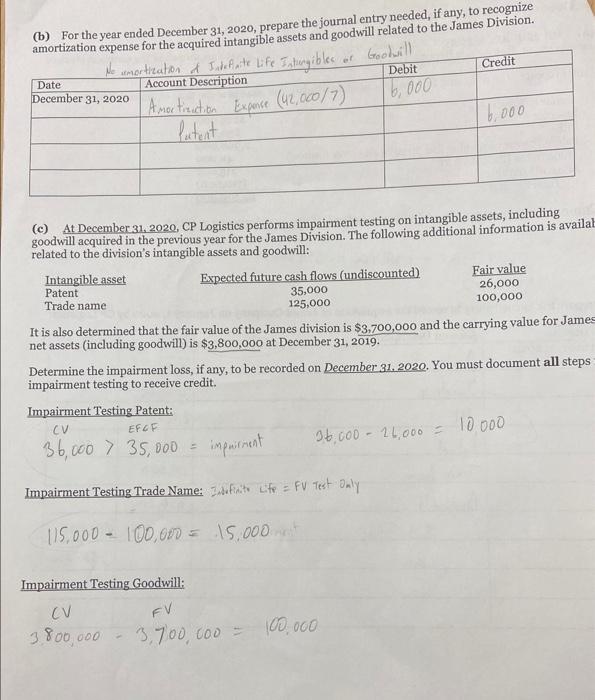 (b) For the year ended December 31, 2020, prepare the journal entry needed, if any, to recognize
amortization expense for the acquired intangible assets and goodwill related to the James Division.
No amortization of Indefinite Life Intangibles or Goodwill
Date Account Description Debit Credit
December 31, 2020 Amortization Expense (42,000/7) 6,000
Patent 6,000
(c) At December 31, 2020, CP Logistics performs impairment testing on intangible assets, including
goodwill acquired in the previous year for the James Division. The following additional information is availab
related to the division's intangible assets and goodwill:
Intangible asset Expected future cash flows (undiscounted) Fair value
Patent 35,000 26,000
Trade name 125,000 100,000
It is also determined that the fair value of the James division is $3,700,000 and the carrying value for James
net assets (including goodwill) is $3,800,000 at December 31, 2019.
Determine the impairment loss, if any, to be recorded on December 31, 2020. You must document all steps
impairment testing to receive credit.
Impairment Testing Patent:
CV EFCF
36,000 > 35,000 = impairment 36,000 - 26,000 = 10,000
Impairment Testing Trade Name: Indefinite Life = FV Test Only
115,000 - 100,000 = 15,000
Impairment Testing Goodwill:
CV FV
3,800,000 - 3,700,000 = 100,000